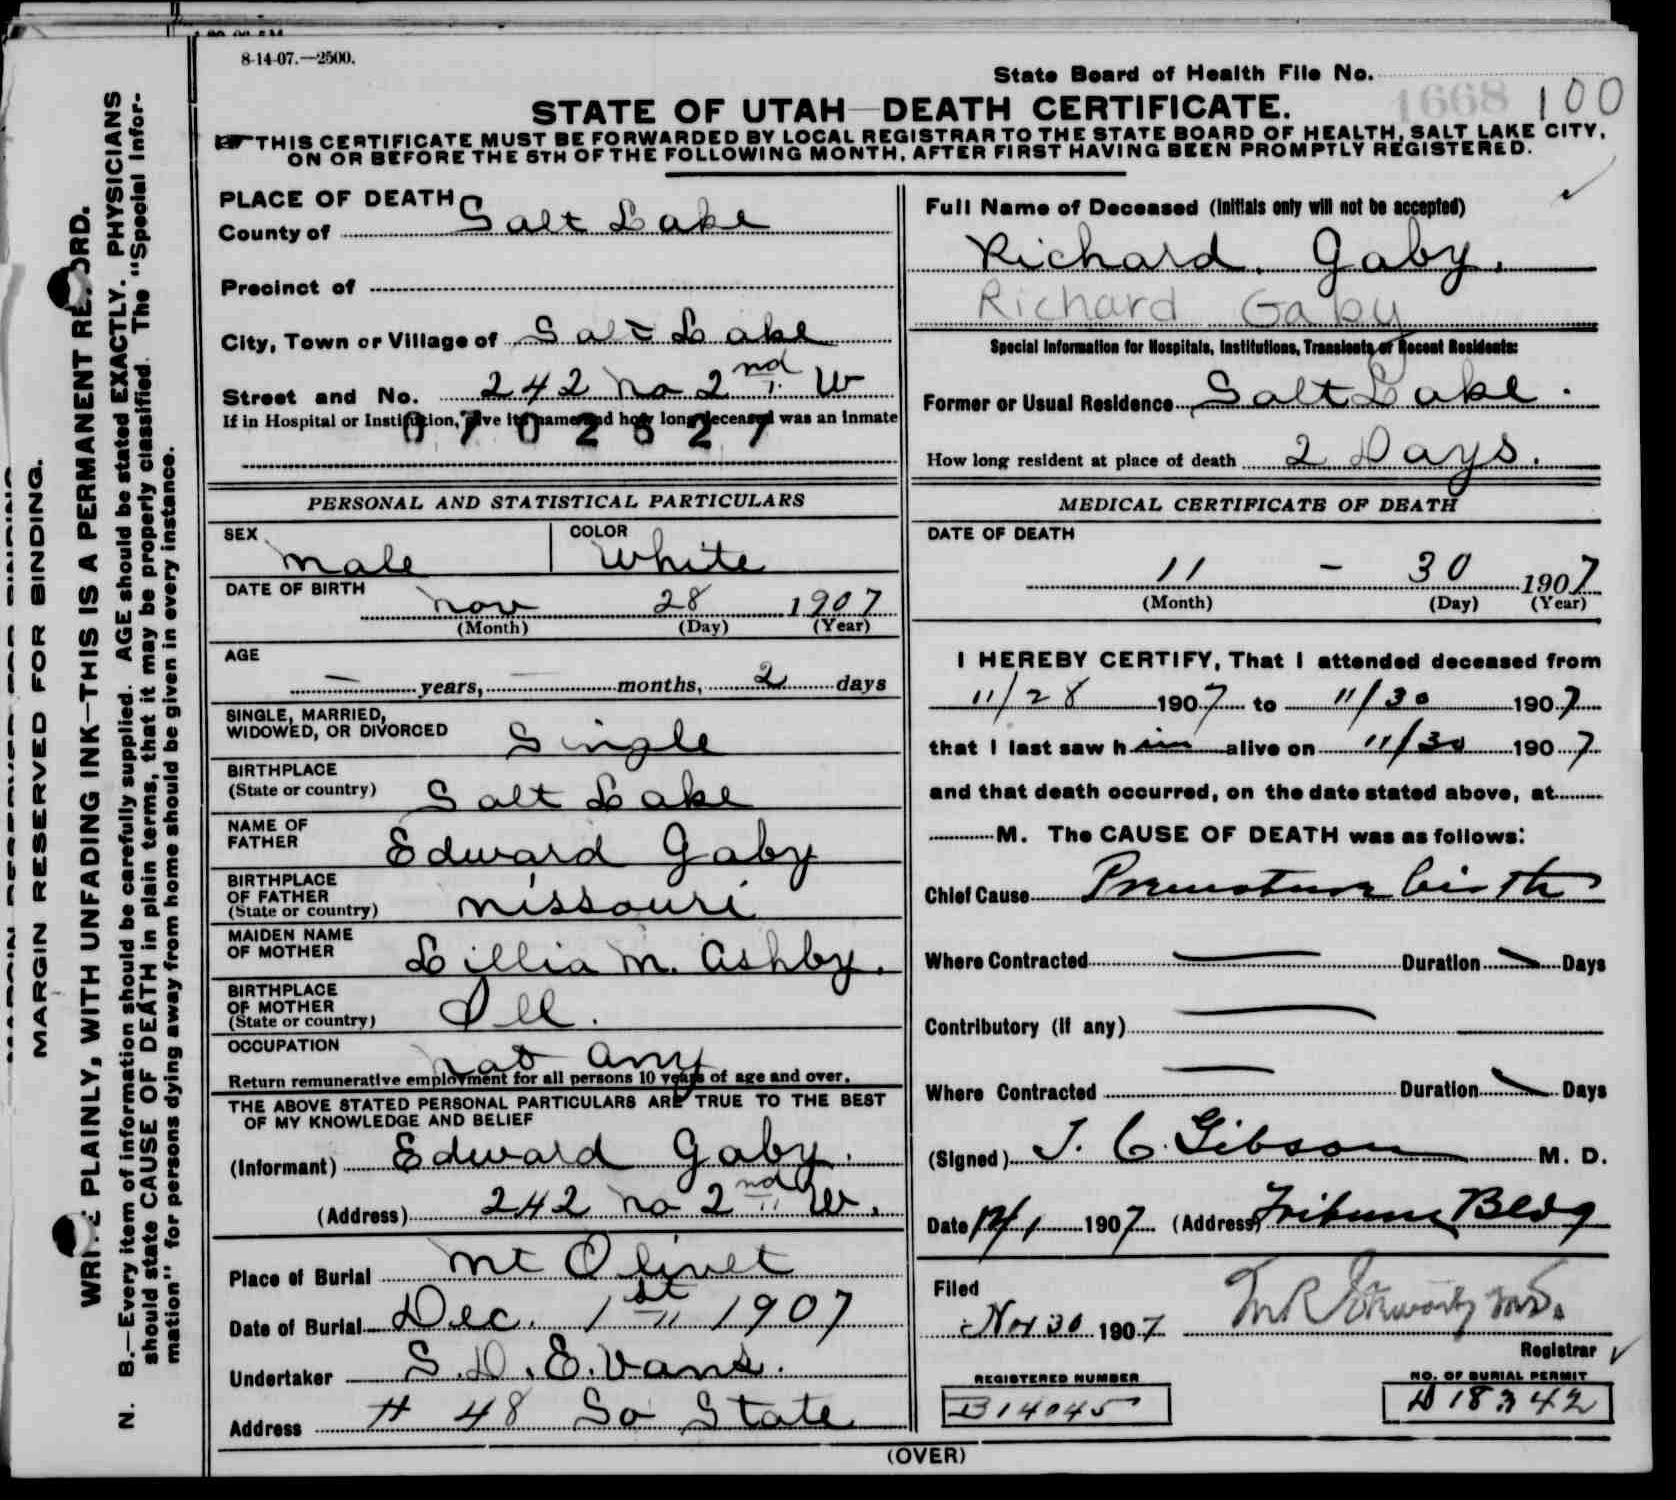 8-14-07.—2500.
State Board of Health File No.
1668 100
STATE OF UTAH—DEATH CERTIFICATE.
THIS CERTIFICATE MUST BE FORWARDED BY LOCAL REGISTRAR TO THE STATE BOARD OF HEALTH, SALT LAKE CITY,
ON OR BEFORE THE 5TH OF THE FOLLOWING MONTH, AFTER FIRST HAVING BEEN PROMPTLY REGISTERED.
PLACE OF DEATH
County of Salt Lake
Precinct of
City, Town or Village of Salt Lake
Street and No. 242 No 2nd W
If in Hospital or Institution, give its name and how long deceased was an inmate
0702827
PERSONAL AND STATISTICAL PARTICULARS
SEX COLOR
Male White
DATE OF BIRTH
Nov 28 1907
(Month) (Day) (Year)
AGE
— years, — months, 2 days
SINGLE, MARRIED,
WIDOWED, OR DIVORCED Single
BIRTHPLACE
(State or country) Salt Lake
NAME OF
FATHER Edward Gaby
BIRTHPLACE
OF FATHER
(State or country) Missouri
MAIDEN NAME
OF MOTHER Lillia M. Ashby.
BIRTHPLACE
OF MOTHER
(State or country) Ill.
OCCUPATION
Not any
Return remunerative employment for all persons 10 years of age and over.
THE ABOVE STATED PERSONAL PARTICULARS ARE TRUE TO THE BEST
OF MY KNOWLEDGE AND BELIEF
(Informant) Edward Gaby.
(Address) 242 No 2nd W.
Place of Burial Mt Olivet
Date of Burial Dec. 1st 1907
Undertaker S. D. Evans.
Address # 48 So State
Full Name of Deceased (Initials only will not be accepted)
Richard. Gaby.
Richard Gaby
Special Information for Hospitals, Institutions, Transients or Recent Residents:
Former or Usual Residence Salt Lake.
How long resident at place of death 2 Days.
MEDICAL CERTIFICATE OF DEATH
DATE OF DEATH
11 — 30 1907
(Month) (Day) (Year)
I HEREBY CERTIFY, That I attended deceased from
11/28 1907 to 11/30 1907
that I last saw him alive on 11/30 1907
and that death occurred, on the date stated above, at
M. The CAUSE OF DEATH was as follows:
Chief Cause Premature birth
Where Contracted — Duration Days
Contributory (if any) —
Where Contracted — Duration Days
(Signed) J. C. Gibson M. D.
Date 12/1 1907 (Address) Tribune Bldg
Filed
Nov 30 1907
Registrar
REGISTERED NUMBER NO. OF BURIAL PERMIT
B14045 D 18342
(OVER)
MARGIN RESERVED FOR BINDING.
WRITE PLAINLY, WITH UNFADING INK—THIS IS A PERMANENT RECORD.
N. B.—Every item of information should be carefully supplied. AGE should be stated EXACTLY. PHYSICIANS
should state CAUSE OF DEATH in plain terms, that it may be properly classified. The "Special Infor-
mation" for persons dying away from home should be given in every instance.